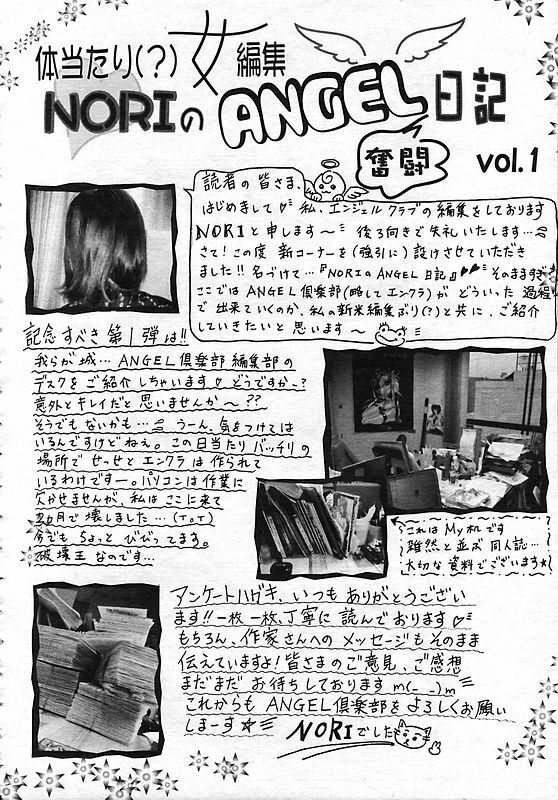 体当たり(?)女編集
NORIのANGEL日記
奮闘
vol.1
読者の皆さま、
はじめまして♡私、エンジェルクラブの編集をしております
NORIと申します〜 後ろ向きで失礼いたします…
さて!この度 新コーナーを(強引に)設けさせていただき
ました!!名づけて…『NORIのANGEL日記』♥♥そのまますぎ
ここではANGEL倶楽部(略してエンクラ)が どういった過程
で出来ていくのか、私の新米編集ぶり(?)と共に、ご紹介
していきたいと思います〜
記念すべき第1弾は!!
我らが城… ANGEL倶楽部編集部の
デスクをご紹介しちゃいます♡どうですか〜?
意外とキレイだと思いませんか〜??
そうでもないかも… うーん、気をつけては
いるんですけどねぇ。この日当たりバッチリの
場所で せっせと エンクラは作られて
いるわけですー。パソコンは作業に
欠かせませんが、私はここに来て
2ヵ月で壊しました…(T_T)
今でも ちょっと びびってます。
破壊王なのです…
これはMy机です
雑然と並ぶ 同人誌…
大切な資料でございます★
アンケートハガキ、いつもありがとうござい
ます!!一枚一枚、丁寧に 読んでおります♡
もちろん、作家さんへのメッセージもそのまま
伝えていますよ!皆さまのご意見、ご感想
まだまだ お待ちしております m(_ _)m
これからも ANGEL倶楽部をよろしくお願い
しまーす☆
NORIでした